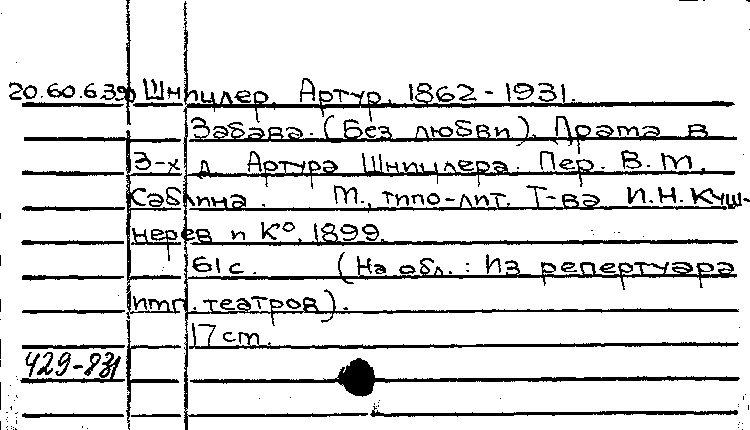 20.60.639 Шницлер, Артур, 1862-1931.
Забава. (Без любви). Драма в
3-х д. Артура Шницлера. Пер. В.М.
Саблина. М., типо-лит. Т-ва И.Н. Куш-
нерев и К°, 1899.
61 с. (На обл.: Из репертуара
имп. театров).
17 cm.
429-831